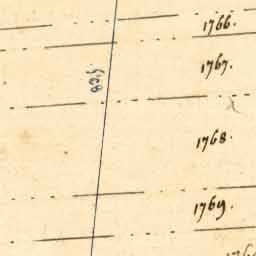 1766.
1767.
82,5
1768.
1769.